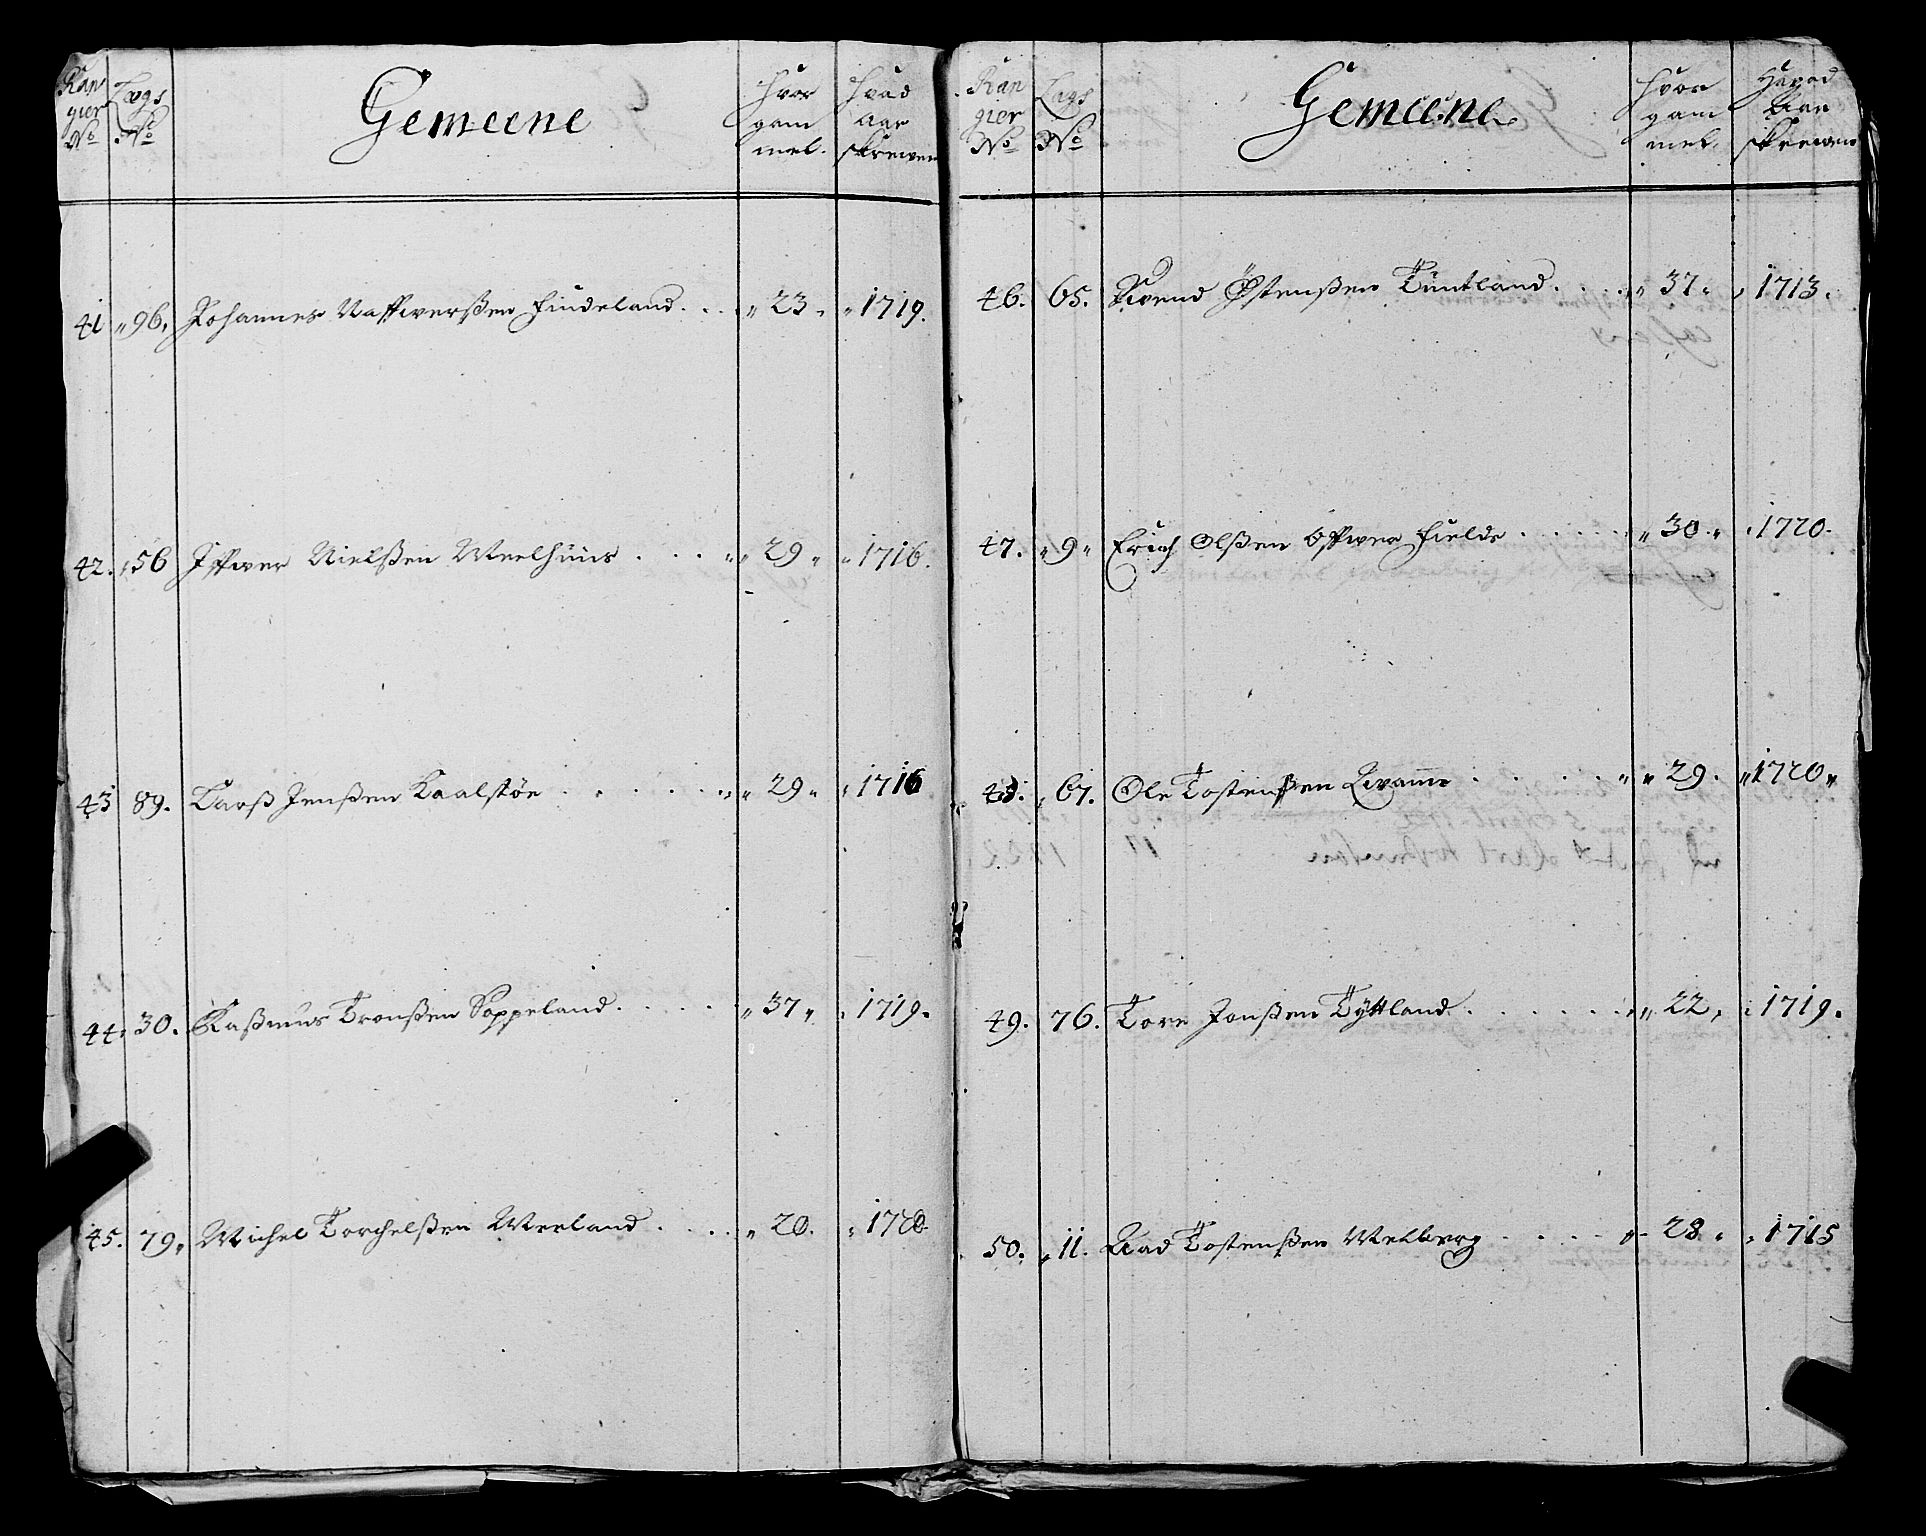 Ran
gier
No
Lægs
No
Gemeene
Hvor
gam
mel.
Hvad
Aar
skrewen
41 96. Johannes Raffwerßen Findeland. 23. 1719.
42. 56 Iffwer Nielßen Weelhuus 29 1716.
43 89. Larß Jenßen Kaalstøe 29 1716
44. 30. Raßmus Tronßen Soppeland. 37 1719.
45. 79. Michel Torchelßen Weeland 20. 1720
Ran
gier
No
Lags
No
Gemeene
Hvor
gam
mel.
Hvad
Aar
skrewen
46. 65. Swend Østenßen Tuntland. 37. 1713.
47. 9 Erich Olßen Offwer Fielde 30. 1720.
48. 67. Ole Tostenßen Qvame 29. 1720
49. 76. Tore Jonßen Tyttland 22 1719.
50. 11. Aad Tostenßen Melberg 28 1715